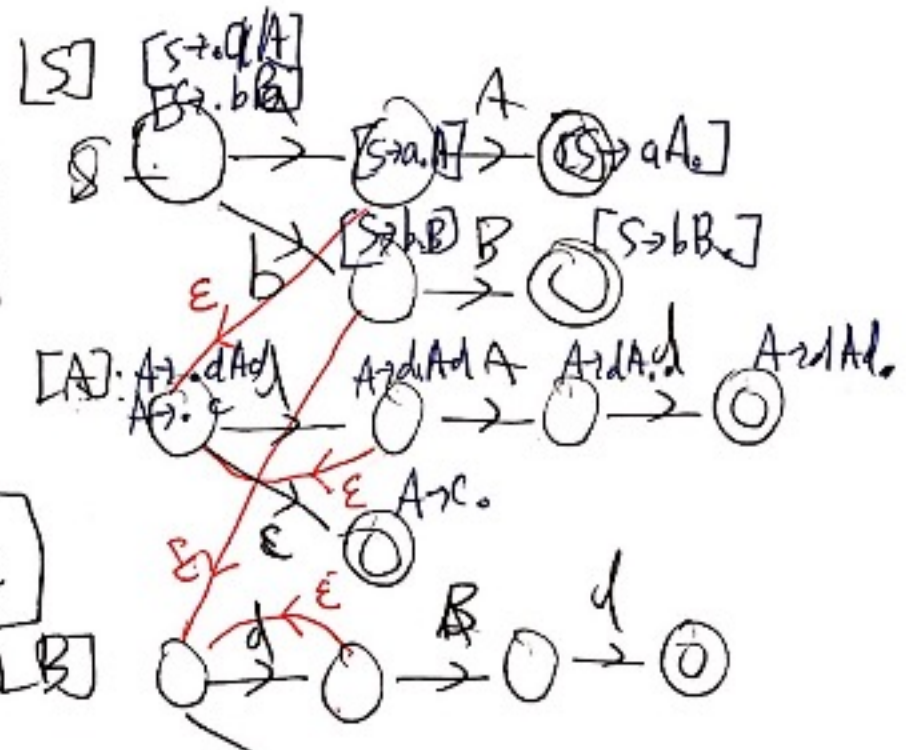 [S]
[S→.aA]
[S→.bB]
S
[S→a.A]
A
[S→aA.]
b
[S→b.B]
B
[S→bB.]
ε
[A]:
A→.dAd
A→.c
d
A→d.Ad
A
A→dA.d
d
A→dAd.
ε
ε
A→c.
ε
ε
[B]
d
B
d